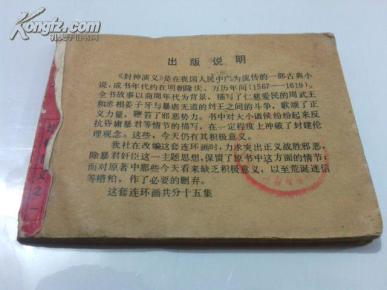 Kongfz.com
孔夫子旧书网
出版说明
《封神演义》是在我国人民中广为流传的一部古典小
说，成书年代约在明朝隆庆、万历年间（1567—1619）。
全书故事以商周年代为背景，描写了仁慈爱民的周武王
和丞相姜子牙与暴虐无道的纣王之间的斗争，歌颂了正
义力量，鞭笞了邪恶势力。书中对大小诸侯纷纷起来反
抗昏庸暴君等情节的描写，在一定程度上冲破了封建伦
理观念。这些，今天仍有其积极意义。
我社在改编这套连环画时，力求突出正义战胜邪恶，
除暴君奸臣这一主题思想，保留了原书中这方面的情节；
而对原著中那些今天看来缺乏积极意义，以至荒诞迷信
等糟粕，作了必要的删弃。
这套连环画共分十五集